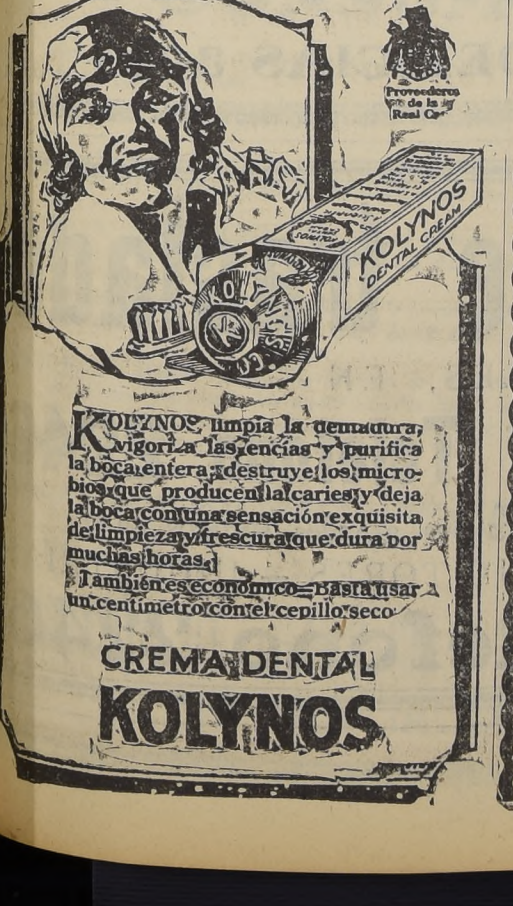 Proveedores
de la
Real
KOLYNOS
DENTAL CREAM
KOLYNOS CO.
K
KOLYNOS limpia la dentadura,
vigoriza las encías y purifica
la boca entera; destruye los micro-
bios que producen la caries y deja
la boca con una sensación exquisita
de limpieza y frescura que dura por
muchas horas.
También es económico=Basta usar
un centímetro con el cepillo seco
CREMA DENTAL
KOLYNOS